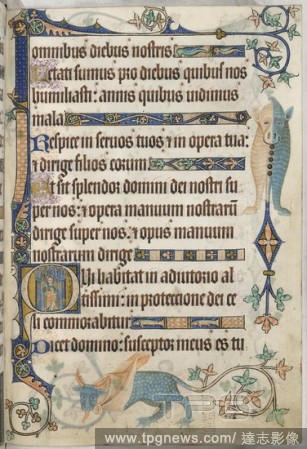 omnibus diebus nostris.
Letati sumus pro diebus quibus nos
humiliasti: annis quibus uidimus
mala
Respice in seruos tuos & in opera tua:
& dirige filios eorum
Et sit splendor domini dei nostri su
per nos: & opera manuum nostrarū
dirige super nos: & opus manuum
nostrarum dirige
Qui habitat in adiutorio al
tissimi: in protectione dei ce
li commorabitur
Dicet domino: susceptor meus es tu
www.tpgnews.com/ 達志影像